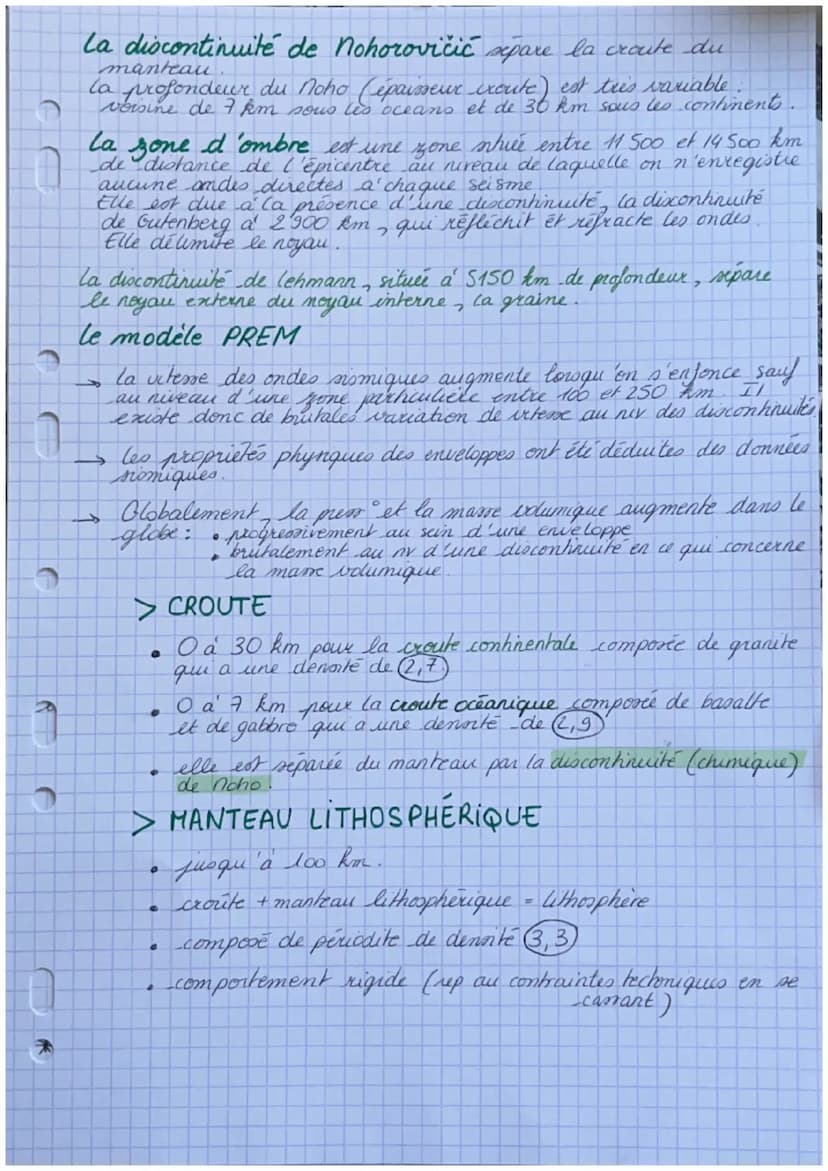 La discontinuité de Mohorovičić sépare la croute du
manteau.
La profondeur du Moho (épaisseur croute) est très variable :
voisine de 7 km sous les océans et de 30 km sous les continents.
La zone d'ombre est une zone située entre 11 500 et 14 500 km
de distance de l'épicentre au niveau de laquelle on n'enregistre
aucune ondes directes à chaque seisme
Elle est due à la présence d'une discontinuité, la discontinuité
de Gutenberg à 2900 km, qui réfléchit et réfracte les ondes.
Elle délimite le noyau.
La discontinuité de Lehmann, située à 5150 km de profondeur, sépare
le noyau externe du noyau interne, la graine.
Le modèle PREM
→ La vitesse des ondes sismiques augmente lorsqu'on s'enfonce sauf
au niveau d'une zone particulière entre 100 et 250 km. Il
existe donc de brutales variation de vitesse au niv des discontinuités
→ Les propriétés physiques des enveloppes ont été déduites des données
sismiques.
→ Globalement, la press° et la masse volumique augmente dans le
globe : • progressivement au sein d'une enveloppe
• brutalement au nv d'une discontinuité en ce qui concerne
la masse volumique.
> CROUTE
• 0 à 30 km pour la croute continentale composée de granite
qui a une densité de 2,7
• 0 à 7 km pour la croute océanique composé de basalte
et de gabbro qui a une densité de 2,9
• elle est séparée du manteau par la discontinuité (chimique)
de Moho.
> MANTEAU LITHOSPHÉRIQUE
• jusqu'à 100 km.
• croûte + manteau lithosphérique = lithosphère
• composé de péridite de densité 3,3
• comportement rigide (rep au contraintes techoniques en se
cassant)